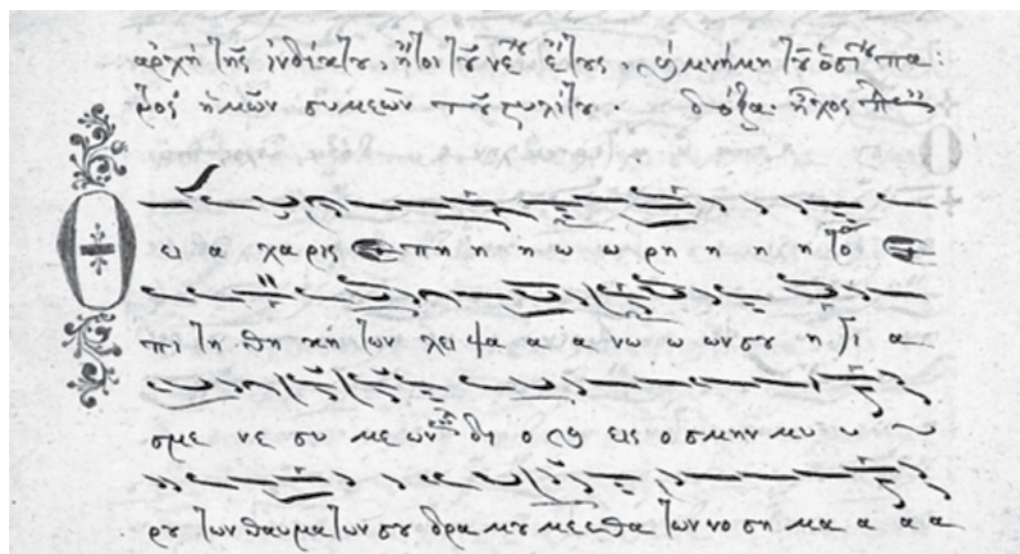 ἀρχὴ τῆς ἰνδίκτου, ἤτοι τοῦ νέου ἔτους, καὶ μνήμη τοῦ ὁσίου πα:
τρὸς ἡμῶν συμεὼν τοῦ στυλίτου. δόξα ἦχος
Θ ει α χα ρις ε πη η η ω ω ρη η η η το ε
πι τη θη κη των λει ψα α α νω ω ων σου η γι α
σμε νε συ με ων δι ο και εις ο σμην μυ υ υ
ρου των θαυμα των σου δρα μου με εθα των νο ση μα α α α